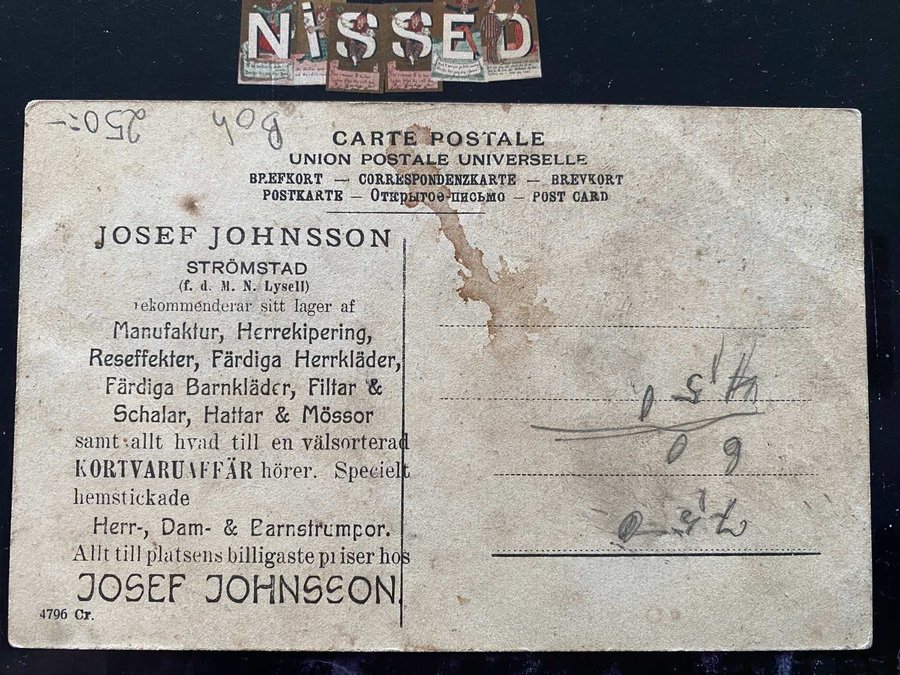 NISSED
250:- Boh
CARTE POSTALE
UNION POSTALE UNIVERSELLE
BREFKORT — CORRESPONDENZKARTE — BREVKORT
POSTKARTE — Открытое письмо — POST CARD
JOSEF JOHNSSON
STRÖMSTAD
(f. d. M. N. Lysell)
rekommenderar sitt lager af
Manufaktur, Herrekipering,
Reseffekter, Färdiga Herrkläder,
Färdiga Barnkläder, Filtar &
Schalar, Hattar & Mössor
samt allt hvad till en välsorterad
KORTVARUAFFÄR hörer. Specielt
hemstickade
Herr-, Dam- & Barnstrumpor.
Allt till platsens billigaste priser hos
JOSEF JOHNSSON.
4796 Cr.